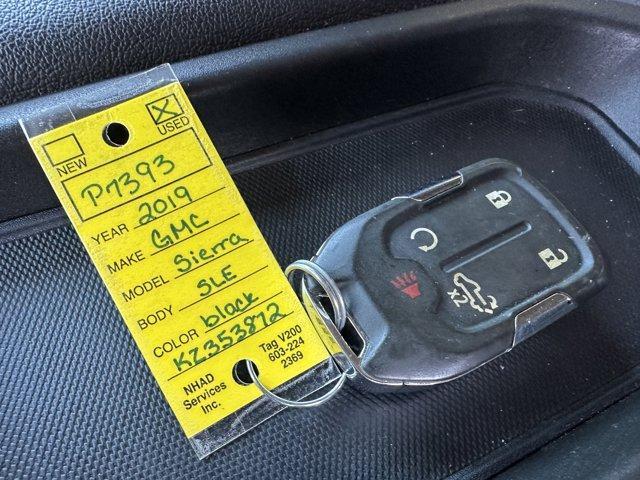 NEW
USED
P7393
YEAR 2019
MAKE GMC
MODEL Sierra
BODY SLE
COLOR black
KZ353872
NHAD
Services
Inc.
Tag V200
603-224
2369
X2